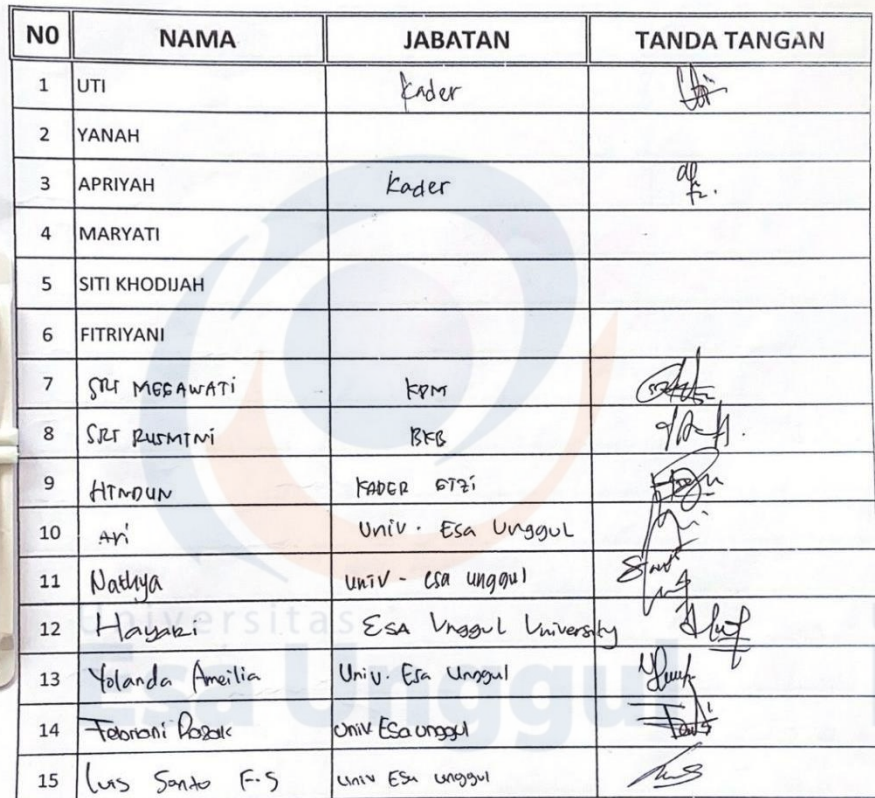 NO NAMA JABATAN TANDA TANGAN
1 UTI Kader
2 YANAH
3 APRIYAH Kader
4 MARYATI
5 SITI KHODIJAH
6 FITRIYANI
7 SRI MEGAWATi KPM
8 SRI RUSMINI BKB
9 HINDUN KADER GIZi
10 Ari Univ. Esa Unggul
11 Nathya univ - esa unggul
12 Hayaki ESA Unggul University
13 Yolanda Ameilia Univ. Esa Unggul
14 Febriani Razak Univ Esa unggul
15 Luis Santo F.S univ Esa unggul
Universitas
Esa Unggul